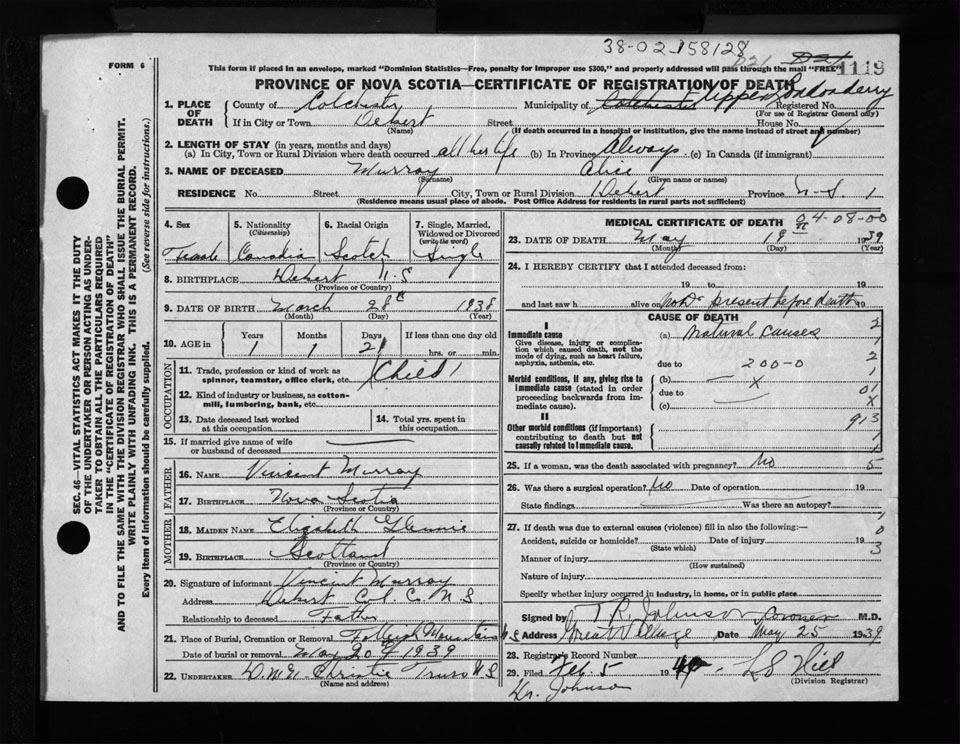 38-02-158128
FORM 6
This form if placed in an envelope, marked "Dominion Statistics—Free, penalty for improper use $300," and properly addressed will pass through the mail "FREE"
1119
PROVINCE OF NOVA SCOTIA—CERTIFICATE OF REGISTRATION OF DEATH
1. PLACE OF DEATH County of Colchester Municipality of Colchester Upper Londonderry Registered No.
(For use of Registrar General only)
If in City or Town Debert Street House No.
(Name) (If death occurred in a hospital or institution, give the name instead of street and number)
2. LENGTH OF STAY (in years, months and days)
(a) In City, Town or Rural Division where death occurred all her life (b) In Province Always (c) In Canada (if immigrant)
3. NAME OF DECEASED Murray Alice
(Surname) (Given name or names)
RESIDENCE No. Street City, Town or Rural Division Debert Province N-S 1
(Residence means usual place of abode. Post Office Address for residents in rural parts not sufficient)
4. Sex
Female
5. Nationality
(Citizenship)
Canadia
6. Racial Origin
Scotch
7. Single, Married, Widowed or Divorced
(write the word)
Single
8. BIRTHPLACE Debert N.S
(Province or Country)
9. DATE OF BIRTH March 28th 1938
(Month) (Day) (Year)
10. AGE in Years Months Days If less than one day old
1 1 21 hrs. or min.
OCCUPATION
11. Trade, profession or kind of work as spinner, teamster, office clerk, etc. (Child)
12. Kind of industry or business, as cotton-mill, lumbering, bank, etc.
13. Date deceased last worked at this occupation
14. Total yrs. spent in this occupation
15. If married give name of wife or husband of deceased
FATHER
16. NAME Vincent Murray
17. BIRTHPLACE Nova Scotia
(Province or Country)
MOTHER
18. MAIDEN NAME Elizabeth Glennie
19. BIRTHPLACE Scotland
(Province or Country)
20. Signature of informant Vincent Murray
Address Debert Col. C. N S
Relationship to deceased Father
21. Place of Burial, Cremation or Removal Folleigh Mountain N S
Date of burial or removal May 20 1939
22. UNDERTAKER Christie Truro N S
(Name and address)
MEDICAL CERTIFICATE OF DEATH
04-08-00
23. DATE OF DEATH May 18 1939
(Month) (Day) (Year)
24. I HEREBY CERTIFY that I attended deceased from:
19 to 19
and last saw h alive on no Dr present before death 19
CAUSE OF DEATH
I
Immediate cause
Give disease, injury or complication which caused death, not the mode of dying, such as heart failure, asphyxia, asthenia, etc.
(a) Natural Causes
due to 200-0
Morbid conditions, if any, giving rise to immediate cause (stated in order proceeding backwards from immediate cause).
(b)
due to
(c)
II
Other morbid conditions (if important) contributing to death but not causally related to immediate cause.
2
2
1
01
X
913
1
5
25. If a woman, was the death associated with pregnancy? No
26. Was there a surgical operation? No Date of operation 19
State findings Was there an autopsy?
27. If death was due to external causes (violence) fill in also the following:—
Accident, suicide or homicide? Date of injury 19
(State which)
0
3
Manner of injury
(How sustained)
Nature of injury
Specify whether injury occurred in industry, in home, or in public place
Signed by T R Johnson Coroner M.D.
Address Great Village N S Date May 25 1939
28. Registrar's Record Number
29. Filed Feb. 5 1940 L S Hill
(Division Registrar)
Dr. Johnson
SEC. 46—VITAL STATISTICS ACT MAKES IT THE DUTY
OF THE UNDERTAKER OR PERSON ACTING AS UNDER-
TAKER TO OBTAIN ALL THE PARTICULARS REQUIRED
IN THE "CERTIFICATE OF REGISTRATION OF DEATH"
AND TO FILE THE SAME WITH THE DIVISION REGISTRAR WHO SHALL ISSUE THE BURIAL PERMIT.
WRITE PLAINLY WITH UNFADING INK. THIS IS A PERMANENT RECORD.
Every item of information should be carefully supplied. (See reverse side for instructions.)